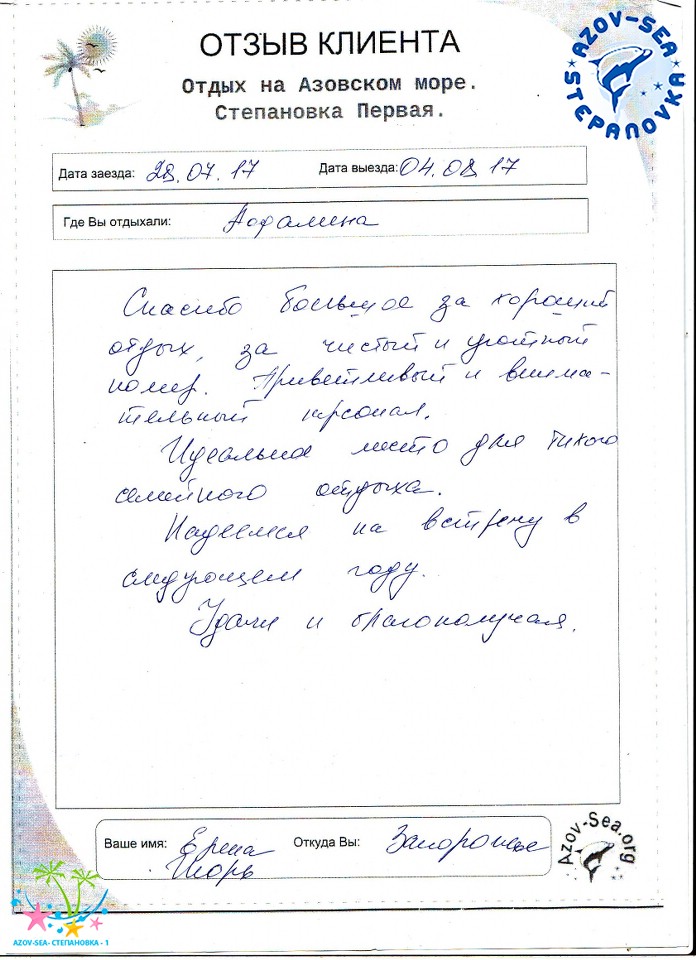 ОТЗЫВ КЛИЕНТА
Отдых на Азовском море.
Степановка Первая.
AZOV-SEA
STEPANOVKA
Дата заезда: 28.07.17 Дата выезда: 04.08 17
Где Вы отдыхали:
Спасибо большое за хороший
отдых, за чистый и уютный
номер. Приветливый и внима-
тельный персонал.
Идеальное место для тихого
семейного отдыха.
Надеемся на встречу в
следующем году.
Удачи и благополучия.
Ваше имя: Откуда Вы: Запорожье
Игорь
Azov-Sea.org
AZOV-SEA- СТЕПАНОВКА - 1